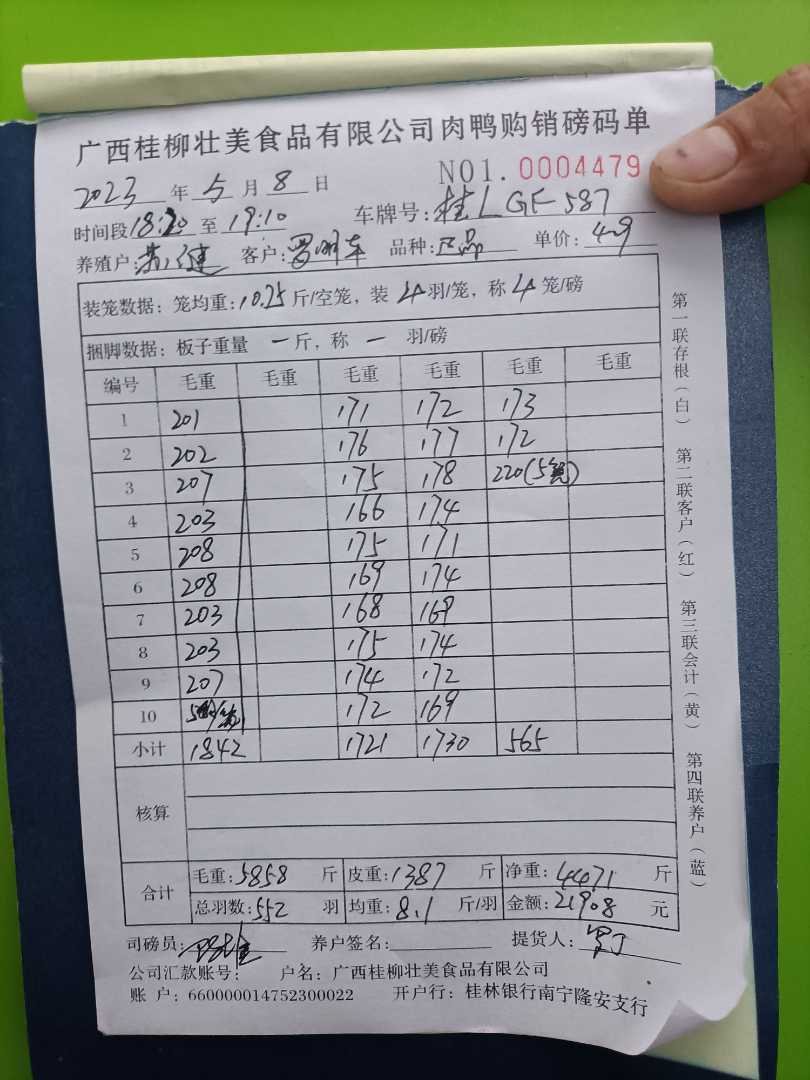 广西桂柳壮美食品有限公司肉鸭购销磅码单
NO1. 0004479
2023 年 5 月 8 日
时间段 18:20 至 19:10 车牌号: 桂L GF587
养殖户: 客户: 品种: 正品 单价: 4.9
装笼数据: 笼均重: 10.25 斤/空笼, 装 4 羽/笼, 称 4 笼/磅
捆脚数据: 板子重量 一 斤, 称 一 羽/磅
编号 毛重 毛重 毛重 毛重 毛重 毛重
1 201 171 172 173
2 202 176 177 172
3 207 175 178 220(5笼)
4 203 166 174
5 208 175 171
6 208 169 174
7 203 168 169
8 203 175 174
9 207 174 172
10 172 169
小计 1842 1721 1730 565
核算
合计 毛重: 5858 斤 皮重: 1387 斤 净重: 4471 斤
总羽数: 552 羽 均重: 8.1 斤/羽 金额: 21908 元
司磅员: 养户签名: 提货人:
公司汇款账号: 户名: 广西桂柳壮美食品有限公司
账 户: 660000014752300022 开户行: 桂林银行南宁隆安支行
第一联存根(白) 第二联客户(红) 第三联会计(黄) 第四联养户(蓝)